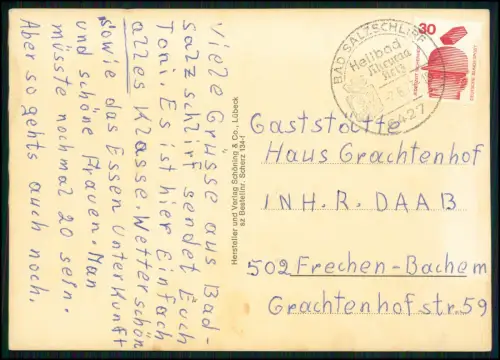 Viele Grüsse aus Bad-
salzschlirf sendet Euch
Toni. Es ist hier Einfach
alles Klasse. Wetter schön
sowie das Essen Unterkunft
und schöne Frauen. Man
müsste nochmal 20 sein.
Aber so gehts auch noch.
Hersteller und Verlag Schöning & Co., Lübeck
sz Bestellnr. Scherz 134-I
BAD SALZSCHLIRF
Heilbad
6427
30
DEUTSCHE BUNDESPOST
Gaststätte
Haus Grachtenhof
INH. R. DAAB
502 Frechen-Bachem
Grachtenhofstr. 59